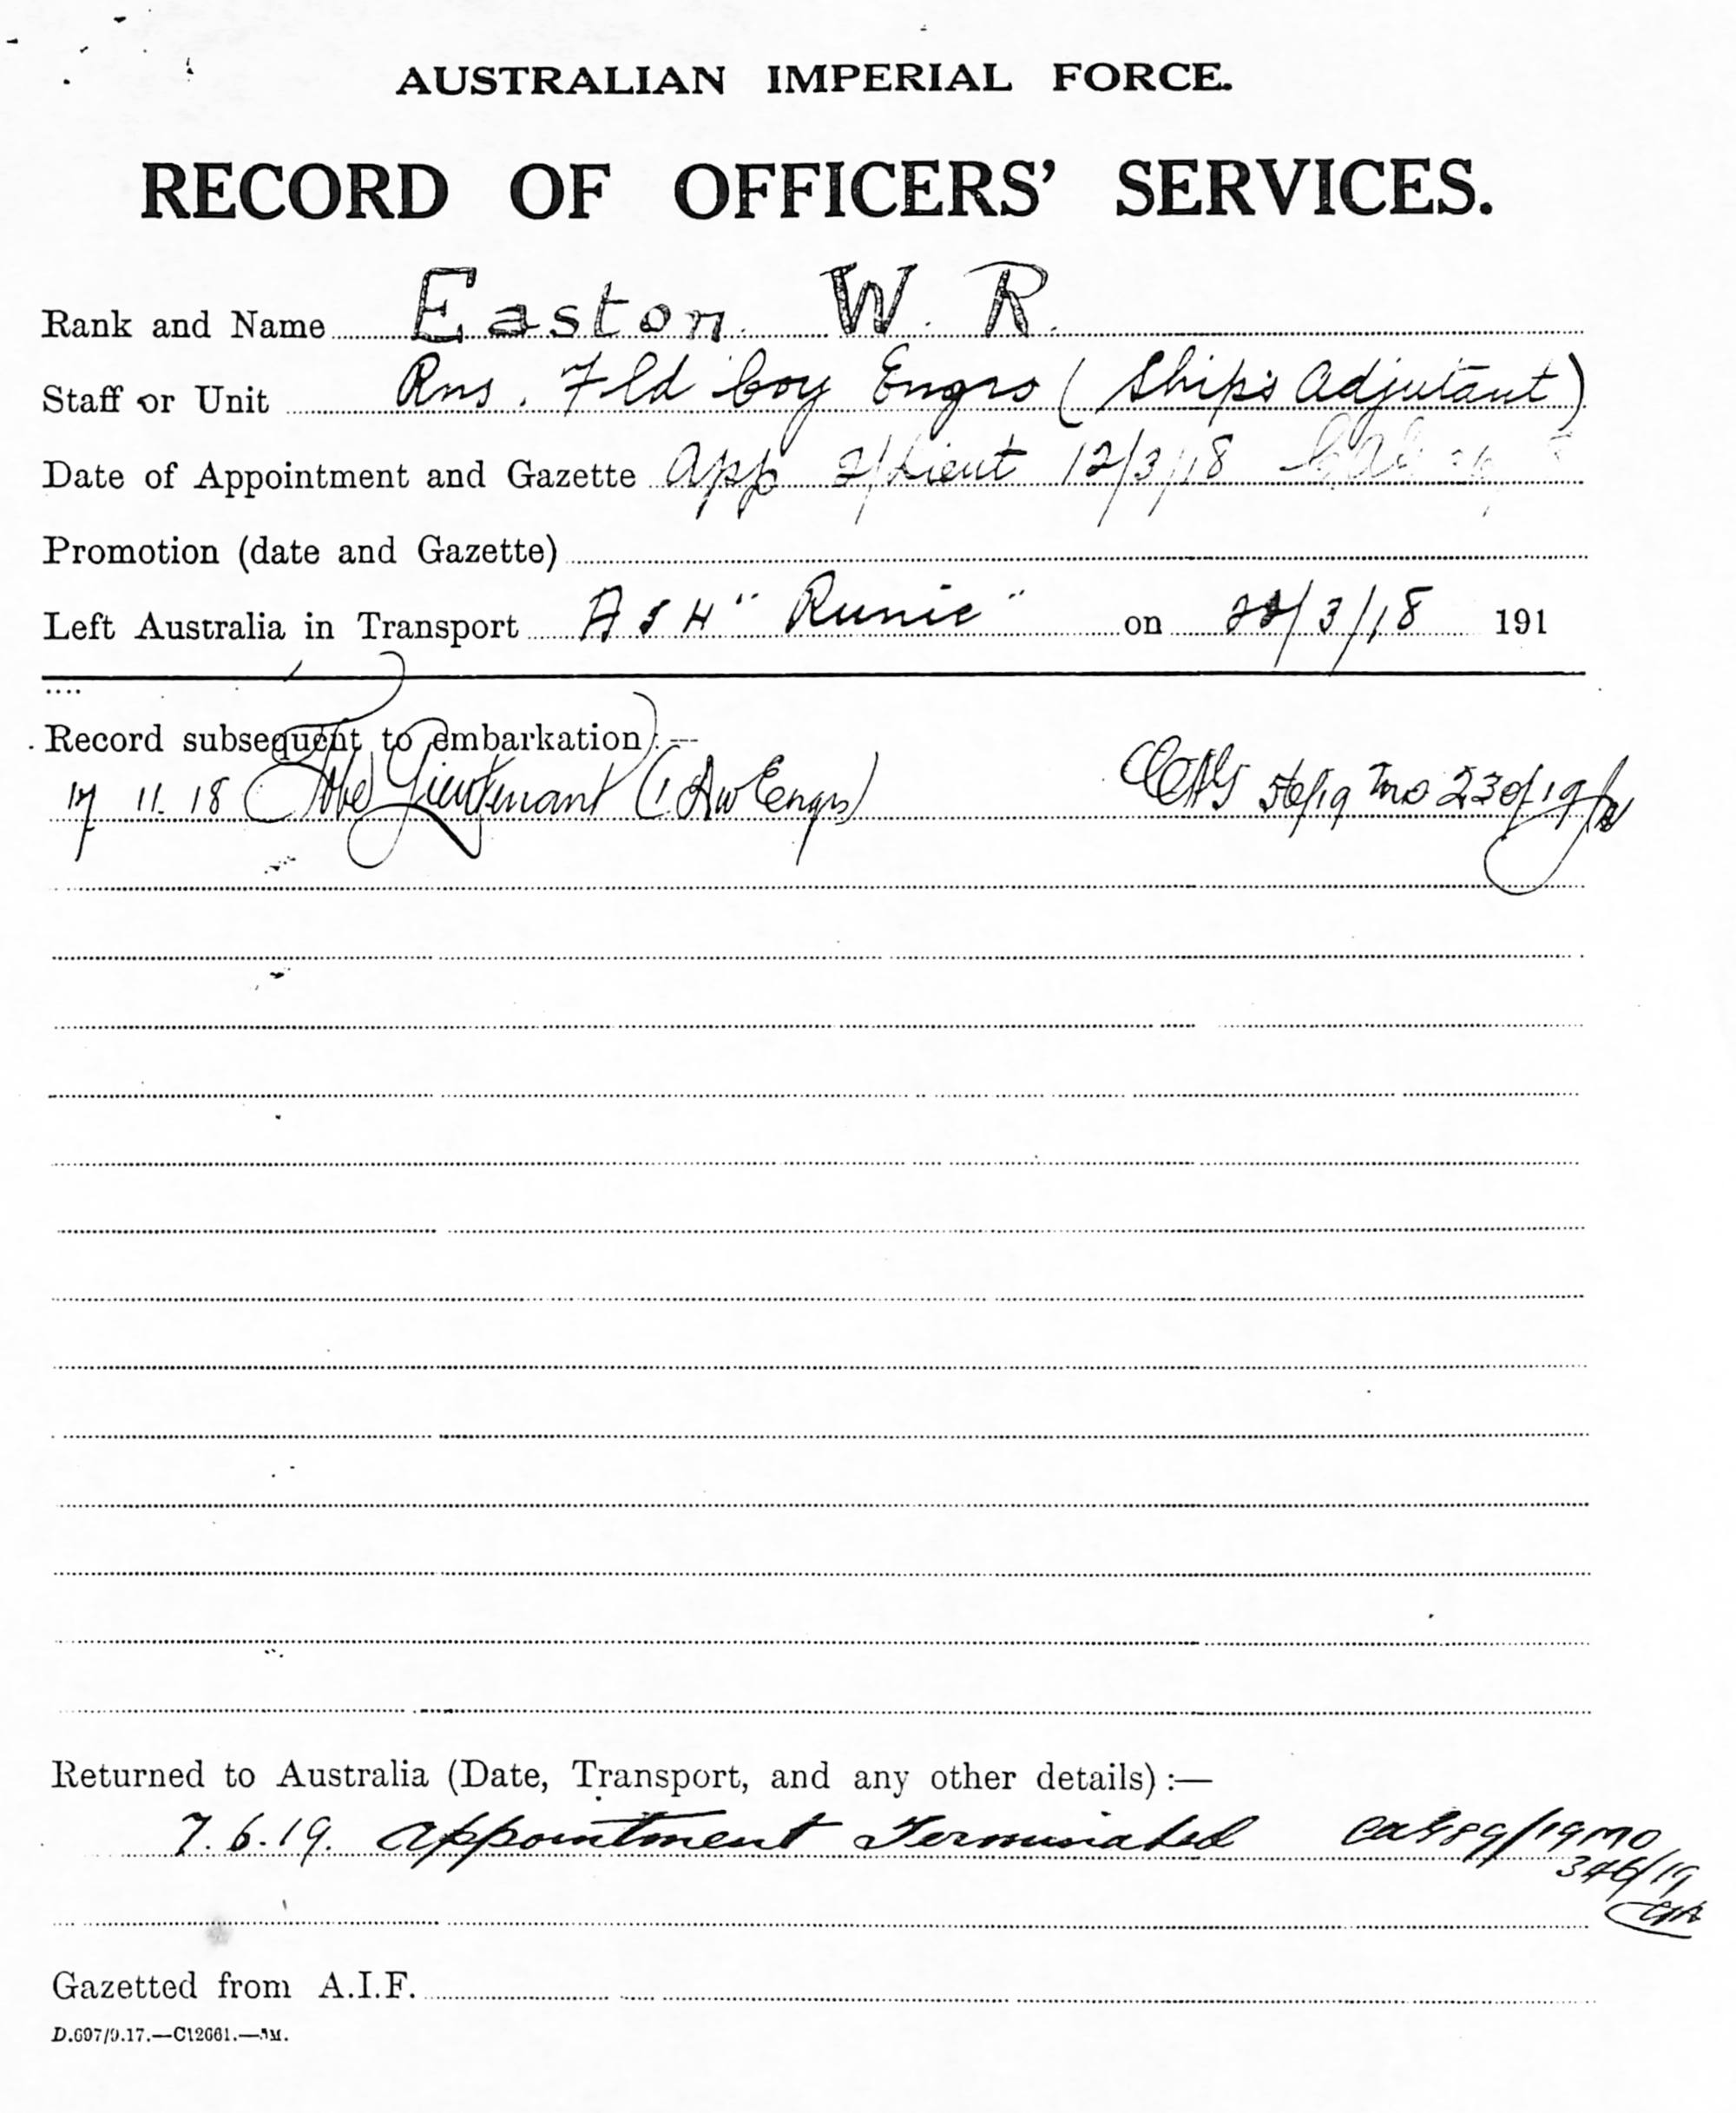 AUSTRALIAN IMPERIAL FORCE.
RECORD OF OFFICERS' SERVICES.
Rank and Name Easton W. R.
Staff or Unit Rns. Fld Coy Engrs (Ship's Adjutant)
Date of Appointment and Gazette App 2/Lieut 12/3/18
Promotion (date and Gazette)
Left Australia in Transport "Runic" on /3/18 191
Record subsequent to embakation:—
17 11. 18 To be Lieutenant ( Engrs) 56/19 230/19
Returned to Australia (Date, Transport, and any other details):—
7.6.19. Appointment Terminated 89/19 MO
346/19
Gazetted from A.I.F.
D.697/9.17.—C12661.—5M.